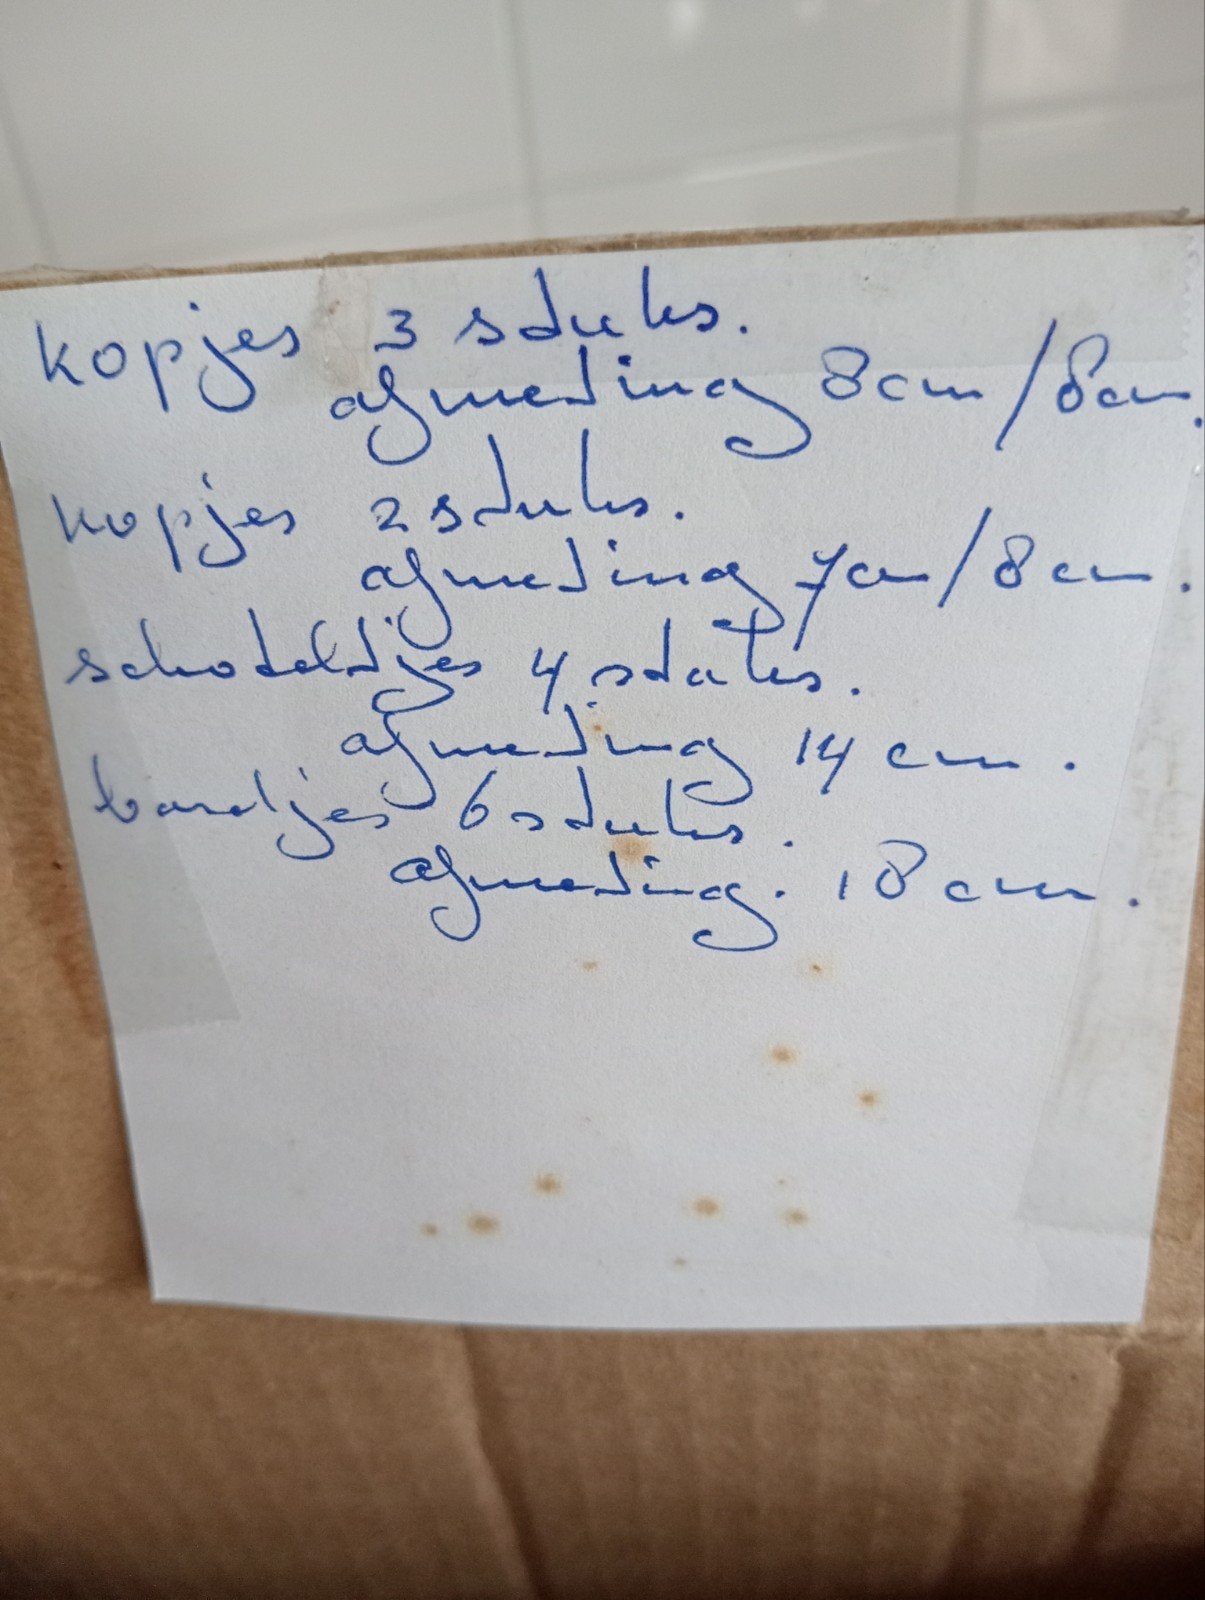 kopjes 3 stuks.
afmeting 8cm/8cm.
kopjes 2 stuks.
afmeting 7cm/8cm.
schoteltjes 4 stuks.
afmeting 14 cm.
bordjes 6 stuks.
afmeting. 18 cm.